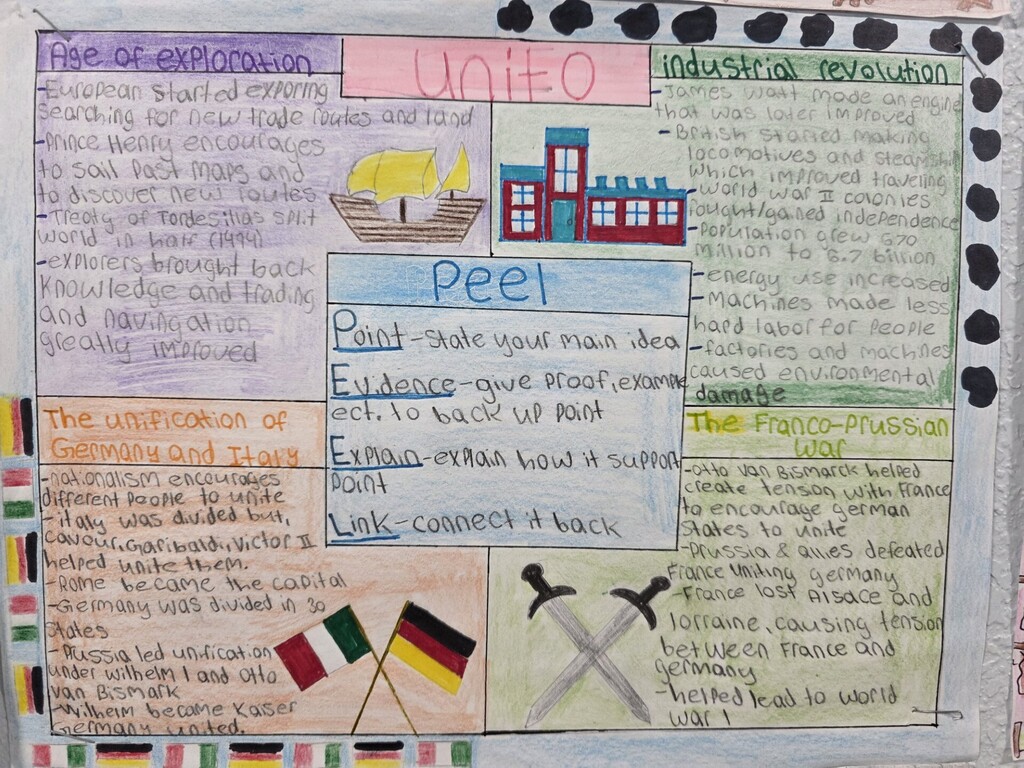 Age of exploration
-European started exporing
searching for new trade routes and land
-Prince Henry encourages
to sail past maps and
to discover new routes
-Treaty of Tordesillas split
world in half (1494)
-explorers brought back
knowledge and trading
and navingation
greatly improved
unit 0
industrial revolution
-James watt made an engine
that was later improved
-British started making
locomotives and steamship
which improved traveling
-world war II colonies
fought/gained independence
-Population grew 670
million to 6.7 billion
-energy use increased
-Machines made less
hard labor for people
-factories and machines
caused environmental
damage
Peel
Point-state your main idea
Evidence-give proof, example
ect. to back up point
Explain-explain how it support
point
Link-connect it back
The unification of
Germany and Italy
-nationalism encourages
different people to unite
-italy was divided but,
cavour, Garibaldi, Victor II
helped unite them.
-Rome became the capital
-Germany was divided in 30
states
-Prussia led unification
under wilhelm I and Otto
van Bismark
-Wilhelm became Kaiser
Germany united.
The Franco-Prussian
war
-otto van Bismarck helped
create tension with France
to encourage german
States to unite
-Prussia & allies defeated
France uniting germany
-France lost Alsace and
lorraine, causing tension
between France and
germany
-helped lead to world
war 1